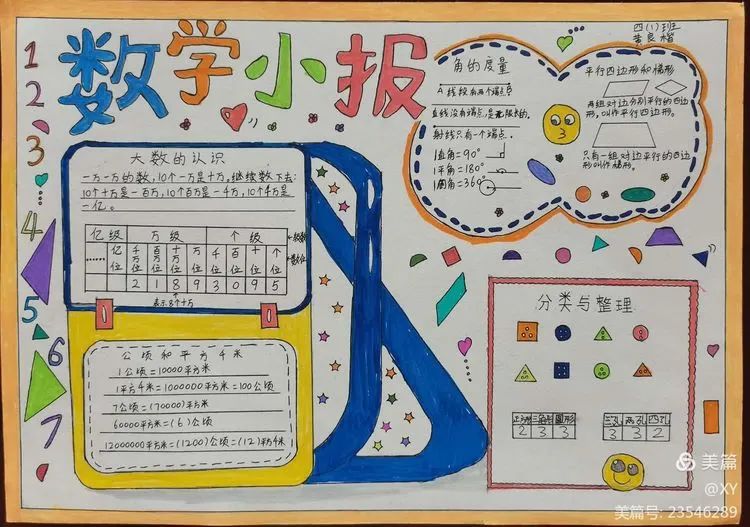 数学小报
四(1)班
黄良楷
1
2
3
4
5
6
7
大数的认识
一万一万的数,10个一万是十万。继续数下去:
10个十万是一百万,10个百万是一千万,10个千万是
一亿。
亿级 万级 个级 ←级数
…… 亿位 千万位 百万位 十万位 万位 千位 百位 十位 个位 ←数位
2 1 8 9 3 0 9 5
表示8个十万
公顷和平方千米
1公顷=10000平方米
1平方千米=1000000平方米=100公顷
7公顷=(70000)平方米
60000平方米=(6)公顷
12000000平方米=(1200)公顷=(12)平方千米
角的度量
线段有两个端点
直线没有端点,是无限长的。
射线只有一个端点。
1直角=90°
1平角=180°
1周角=360°
平行四边形和梯形
两组对边分别平行的四边
形,叫作平行四边形。
只有一组对边平行的四边
形叫作梯形。
分类与整理
正方形 三角形 圆形
2 3 3
三孔 两孔 四孔
3 3 2
美篇
@XY
美篇号: 23546289